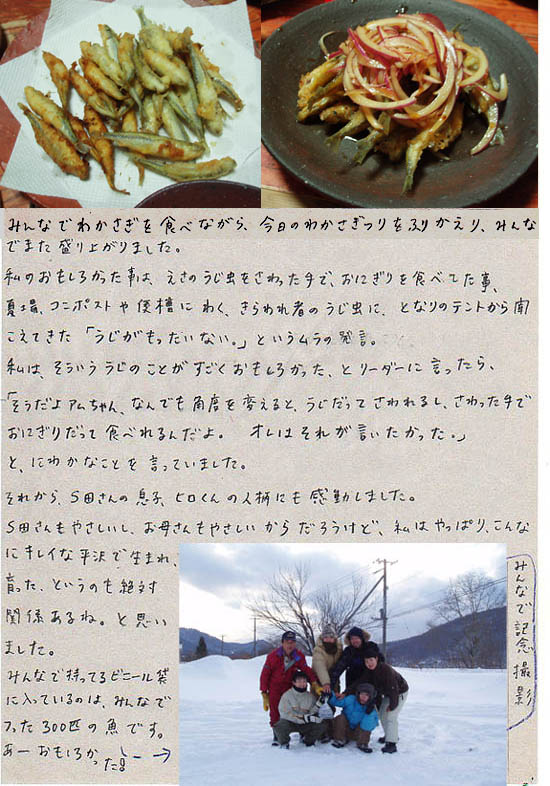 みんなでわかさぎを食べながら、今日のわかさぎつりをふりかえり、みんな
でまた盛り上がりました。
私のおもしろかった事は、えさのうじ虫をさわった手で、おにぎりを食べてた事、
夏場、コンポストや便槽にわく、きらわれ者のうじ虫に、となりのテントから聞
こえてきた「うじがもったいない。」というムラの発言。
私は、そういううじのことがすごくおもしろかった、とリーダーに言ったら、
「そうだよアムちゃん、なんでも角度を変えると、うじだってさわれるし、さわった手で
おにぎりだって食べれるんだよ。 オレはそれが言いたかった。」
と、にわかなことを言っていました。
それから、S田さんの息子、ヒロくんの人柄にも感動しました。
S田さんもやさしいし、お母さんもやさしいからだろうけど、私はやっぱり、こんな
にキレイな平沢で生まれ、
育った、というのも絶対
関係あるね。と思い
ました。
みんなで持ってるビニール袋
に入っているのは、みんなで
つった300匹の魚です。
あーおもしろかった!!
みんなで記念撮影